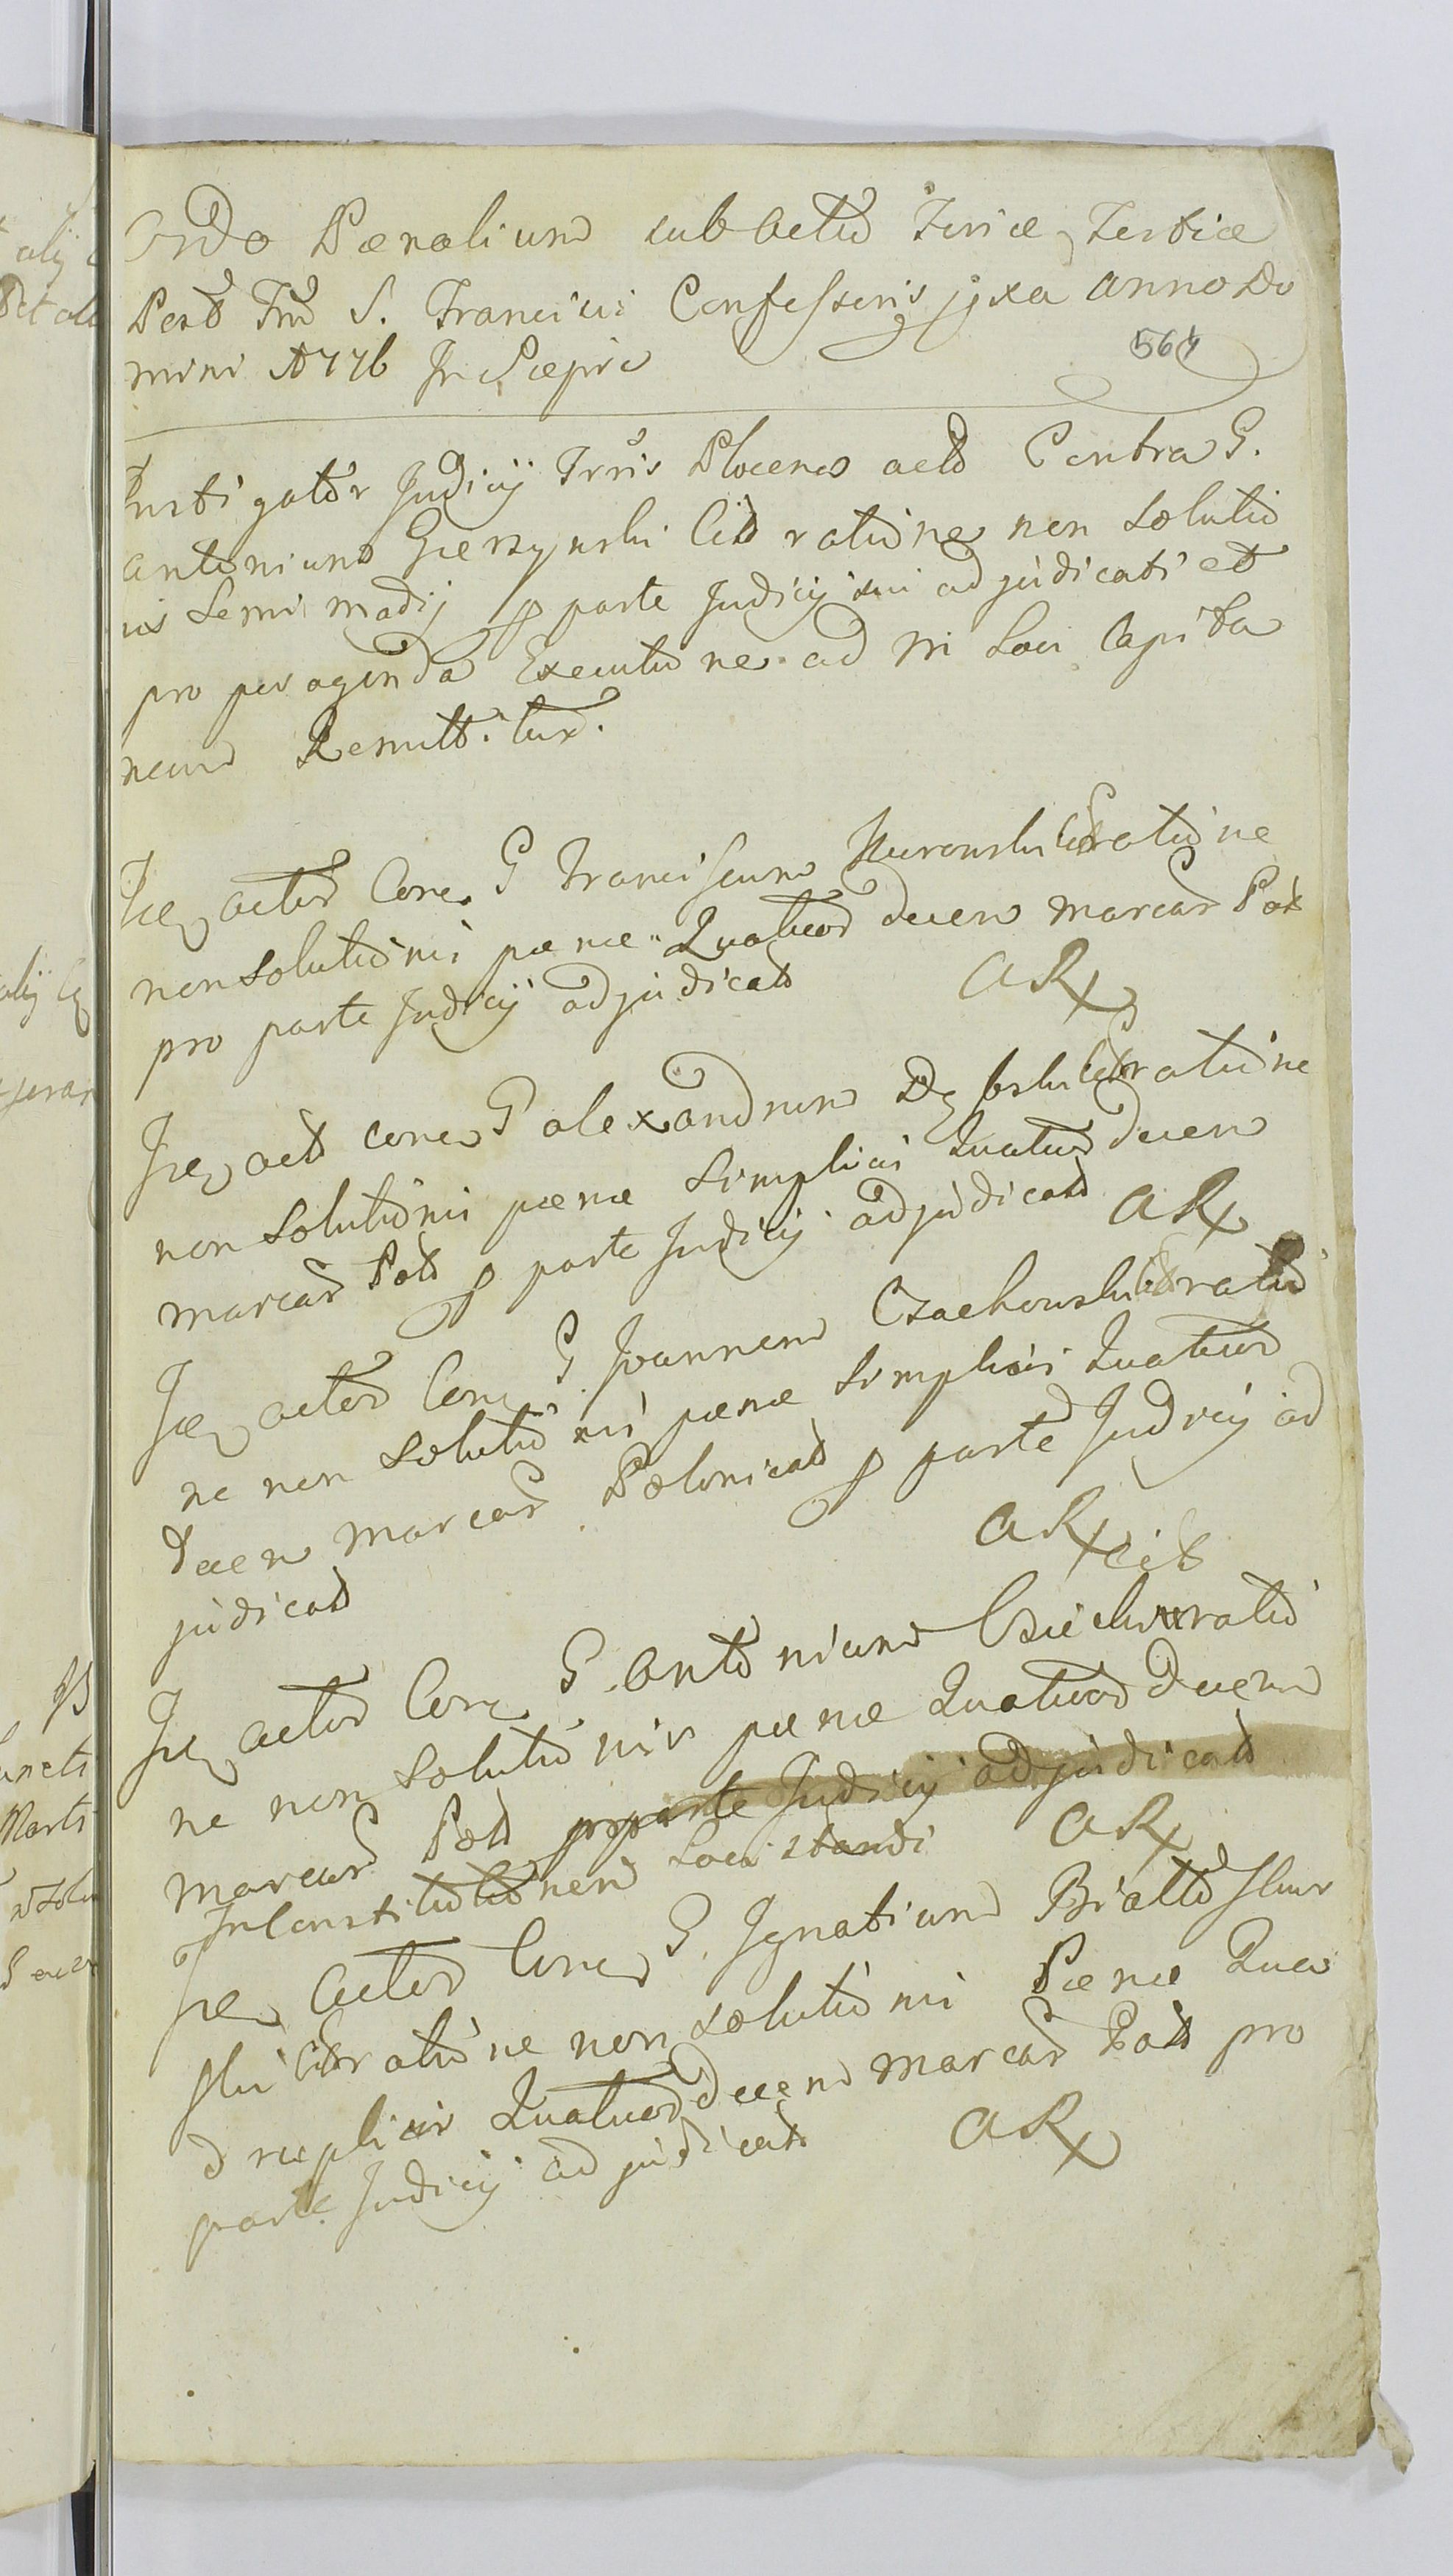 Ordo Pænalium sub Actu Feriæ Tertiæ
Post Ftũ S. Francisci Confessoris pxa Anno Do
mini 1776 In Sæpiæ
564
Instigator Judicij Trris Plocens act Contra G.
Antonium Gierzynski Cit ratione non Solutio
nis Semi madij p parte Judicij sui adjudicati et
pro peragenda Executione ad M Loci Capita
neum Remittitur.
Ice Actor Conc G Franciscum Murowski Cit ratione
non Solutionis pænæ Quatuor decem marcar Pol
pro parte Judicij adjudicat A R
Ice act conc G Alexandrum Cit ratione
non Solutionis pænæ Simplicis Quatuor decem
marcar Pol p parte Judicij adjudicat A R
Ice actor Conc G Joannem Czachowski Cit ratio
ne non Solutionis pænæ Simplicis Quatuor
decem marcar Polonical p parte Judicij ad
judicat A R
cit
Ice actor Conc G. Antonium ratio
ne non Solutionis pænæ Quatuor decem
marcar Pol pro parte Judicij adjudicat
In Loci standi A R
Ice Actor Conc G. Ignatium
ski Cit ratione non Solutionis Pænæ Qua
druplicis Quatuor decem marcar Pol pro
parte Judicij adjudicat A R